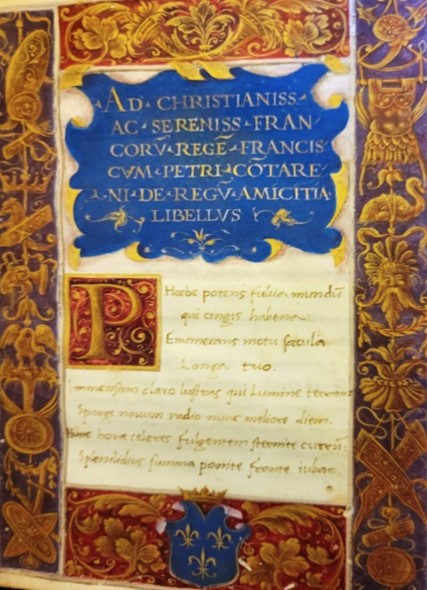 ·AD·CHRISTIANISS·
AC·SERENISS·FRAN
CORṼ·REGẼ·FRANCIS
CVM·PETRI·CÕTARE
NI·DE·REGṼ·AMICITIA
LIBELLVS
PHoebe potens fuluo mundũ
qui cingis habena
Enumerans motu sæcula
Longa tuo.
Immensam claro lustras qui lumine terram
Sparge nouum radio nunc meliore diem.
Nunc hora celeres fulgentem sternite currũ:
Splendidius summa ponite fronte iubar.